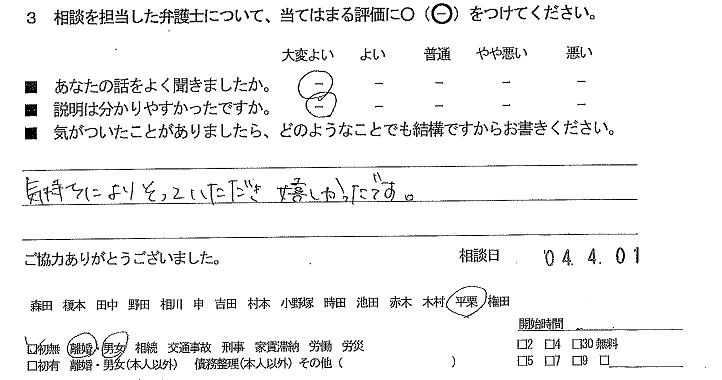 3 相談を担当した弁護士について、当てはまる評価に○（⊖）をつけてください。
大変よい よい 普通 やや悪い 悪い
■ あなたの話をよく聞きましたか。 － － － － －
■ 説明は分かりやすかったですか。 － － － － －
■ 気がついたことがありましたら、どのようなことでも結構ですからお書きください。
気持ちによりそっていただき 嬉しかったです。
ご協力ありがとうございました。 相談日 '04. 4. 01
森田 榎本 田中 野田 相川 申 吉田 村本 小野塚 時田 池田 赤木 木村 平栗 権田
開始時間
□初無 離婚・男女 相続 交通事故 刑事 家賃滞納 労働 労災 □2 □4 □30 無料
□初有 離婚・男女(本人以外) 債務整理(本人以外) その他 ( ) □5 □7 □9 □